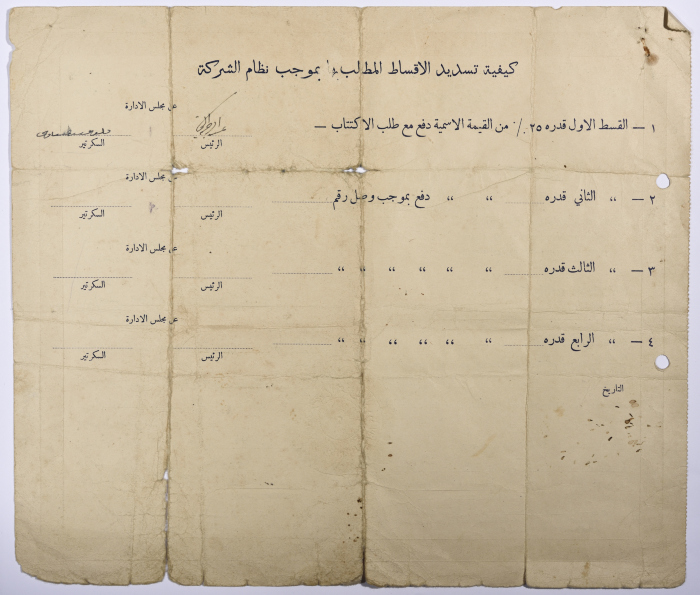 كيفية تسديد الاقساط المطالب بها بموجب نظام الشركة
عن مجلس الادارة
١ — القسط الاول قدره ٢٥ ٪ من القيمة الاسمية دفع مع طلب الاكتتاب —
الرئيس السكرتير
عن مجلس الادارة
٢ — ،، الثاني قدره ،، ،، دفع بموجب وصل رقم
الرئيس السكرتير
عن مجلس الادارة
٣ — ،، الثالث قدره ،، ،، ،، ،، ،، ،،
الرئيس السكرتير
عن مجلس الادارة
٤ — ،، الرابع قدره ،، ،، ،، ،، ،، ،،
الرئيس السكرتير
التاريخ